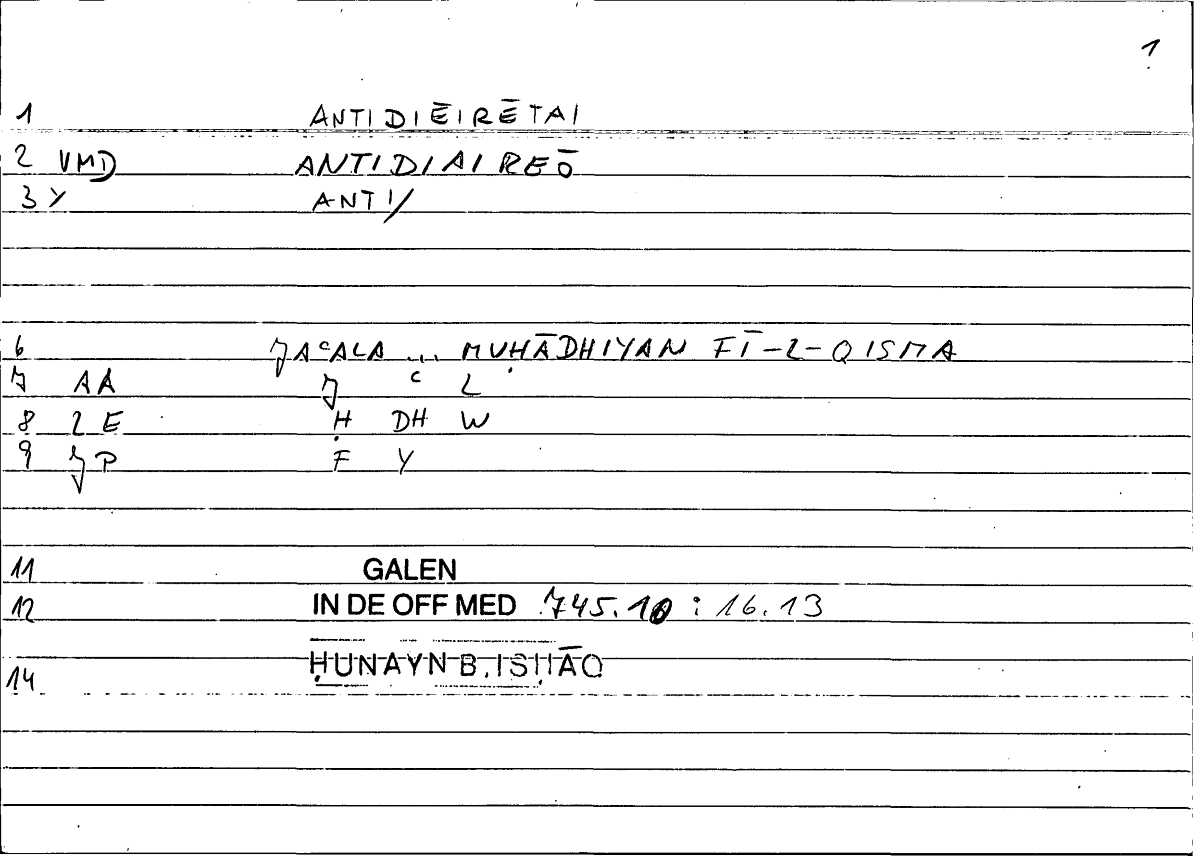 1
1 ANTIDIĒIRĒTAI
2 VMD ANTIDIAIREŌ
3 Y ANTI/
6 JAʿALA ... MUḤĀDHIYAN FĪ-L-QISMA
7 AA J ʿ L
8 2E Ḥ DH W
9 JP F Y
11 GALEN
12 IN DE OFF MED 745.10 : 16.13
14 ḤUNAYN B. ISḤĀQ